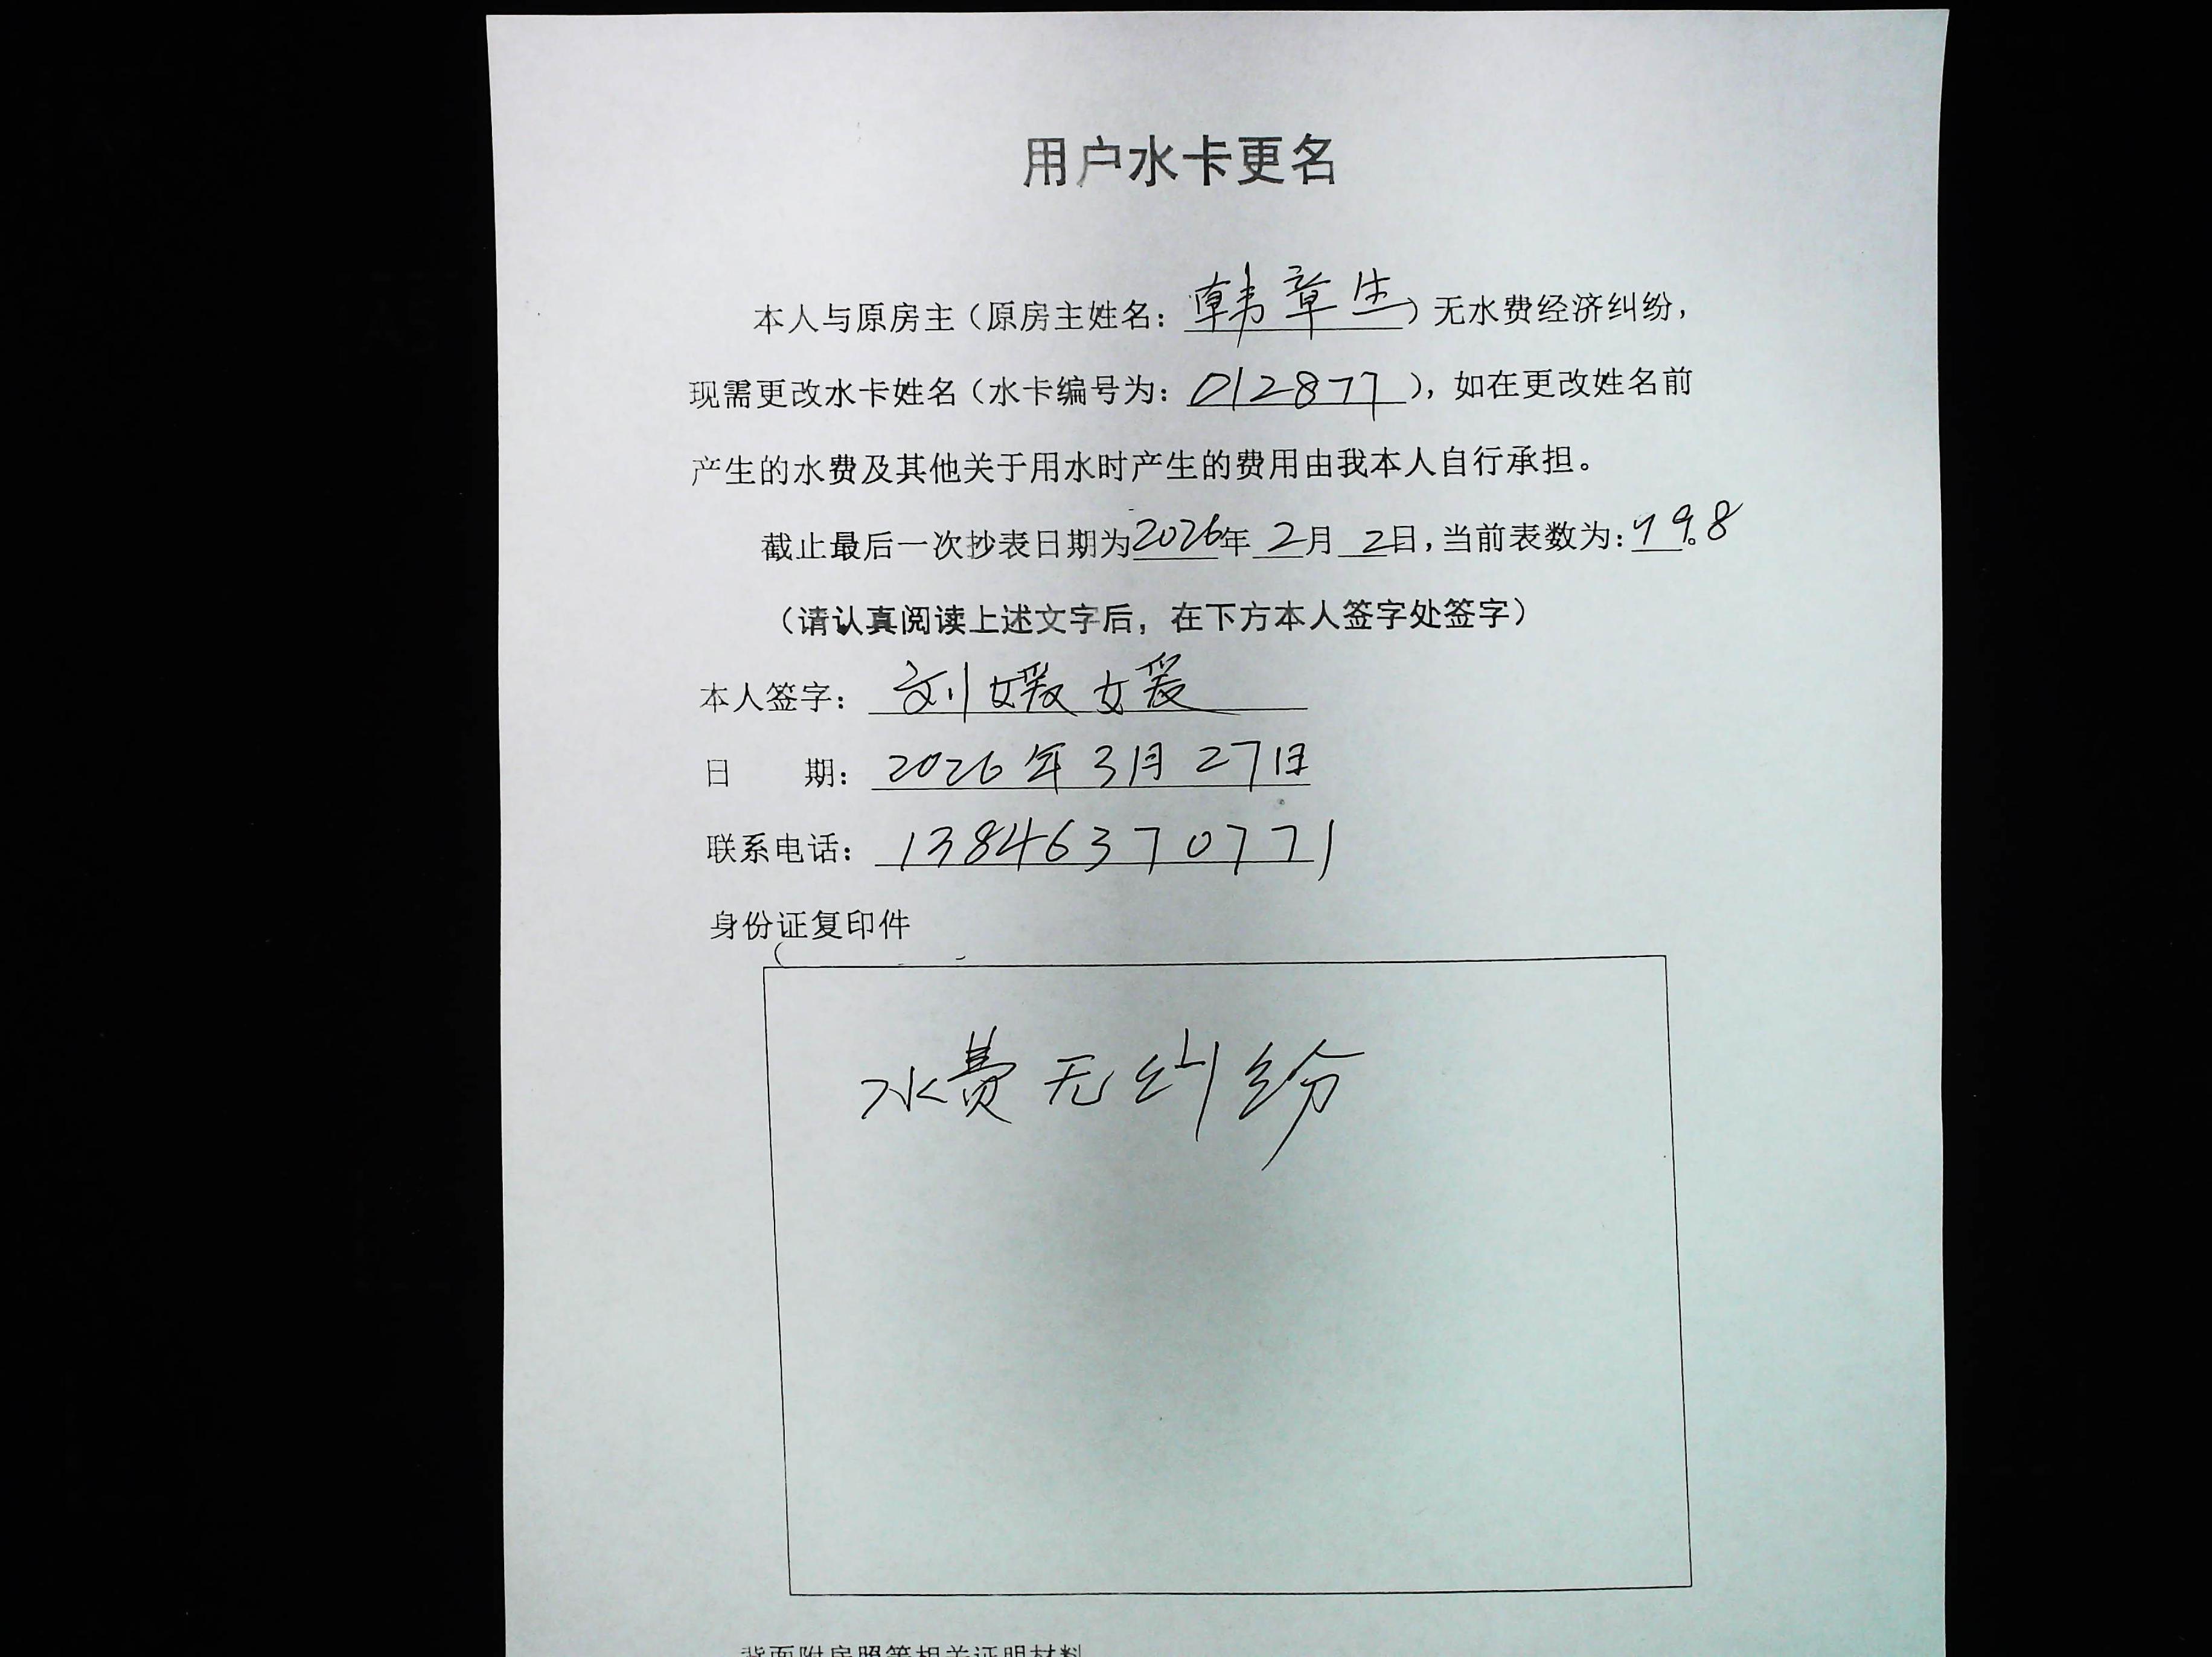 用户水卡更名
本人与原房主（原房主姓名：韩章生）无水费经济纠纷，
现需更改水卡姓名（水卡编号为：012877），如在更改姓名前
产生的水费及其他关于用水时产生的费用由我本人自行承担。
截止最后一次抄表日期为2026年2月2日，当前表数为：798
（请认真阅读上述文字后，在下方本人签字处签字）
本人签字：刘媛媛
日 期：2026年3月27日
联系电话：13846370771
身份证复印件
水费无纠纷
背面附房照等相关证明材料